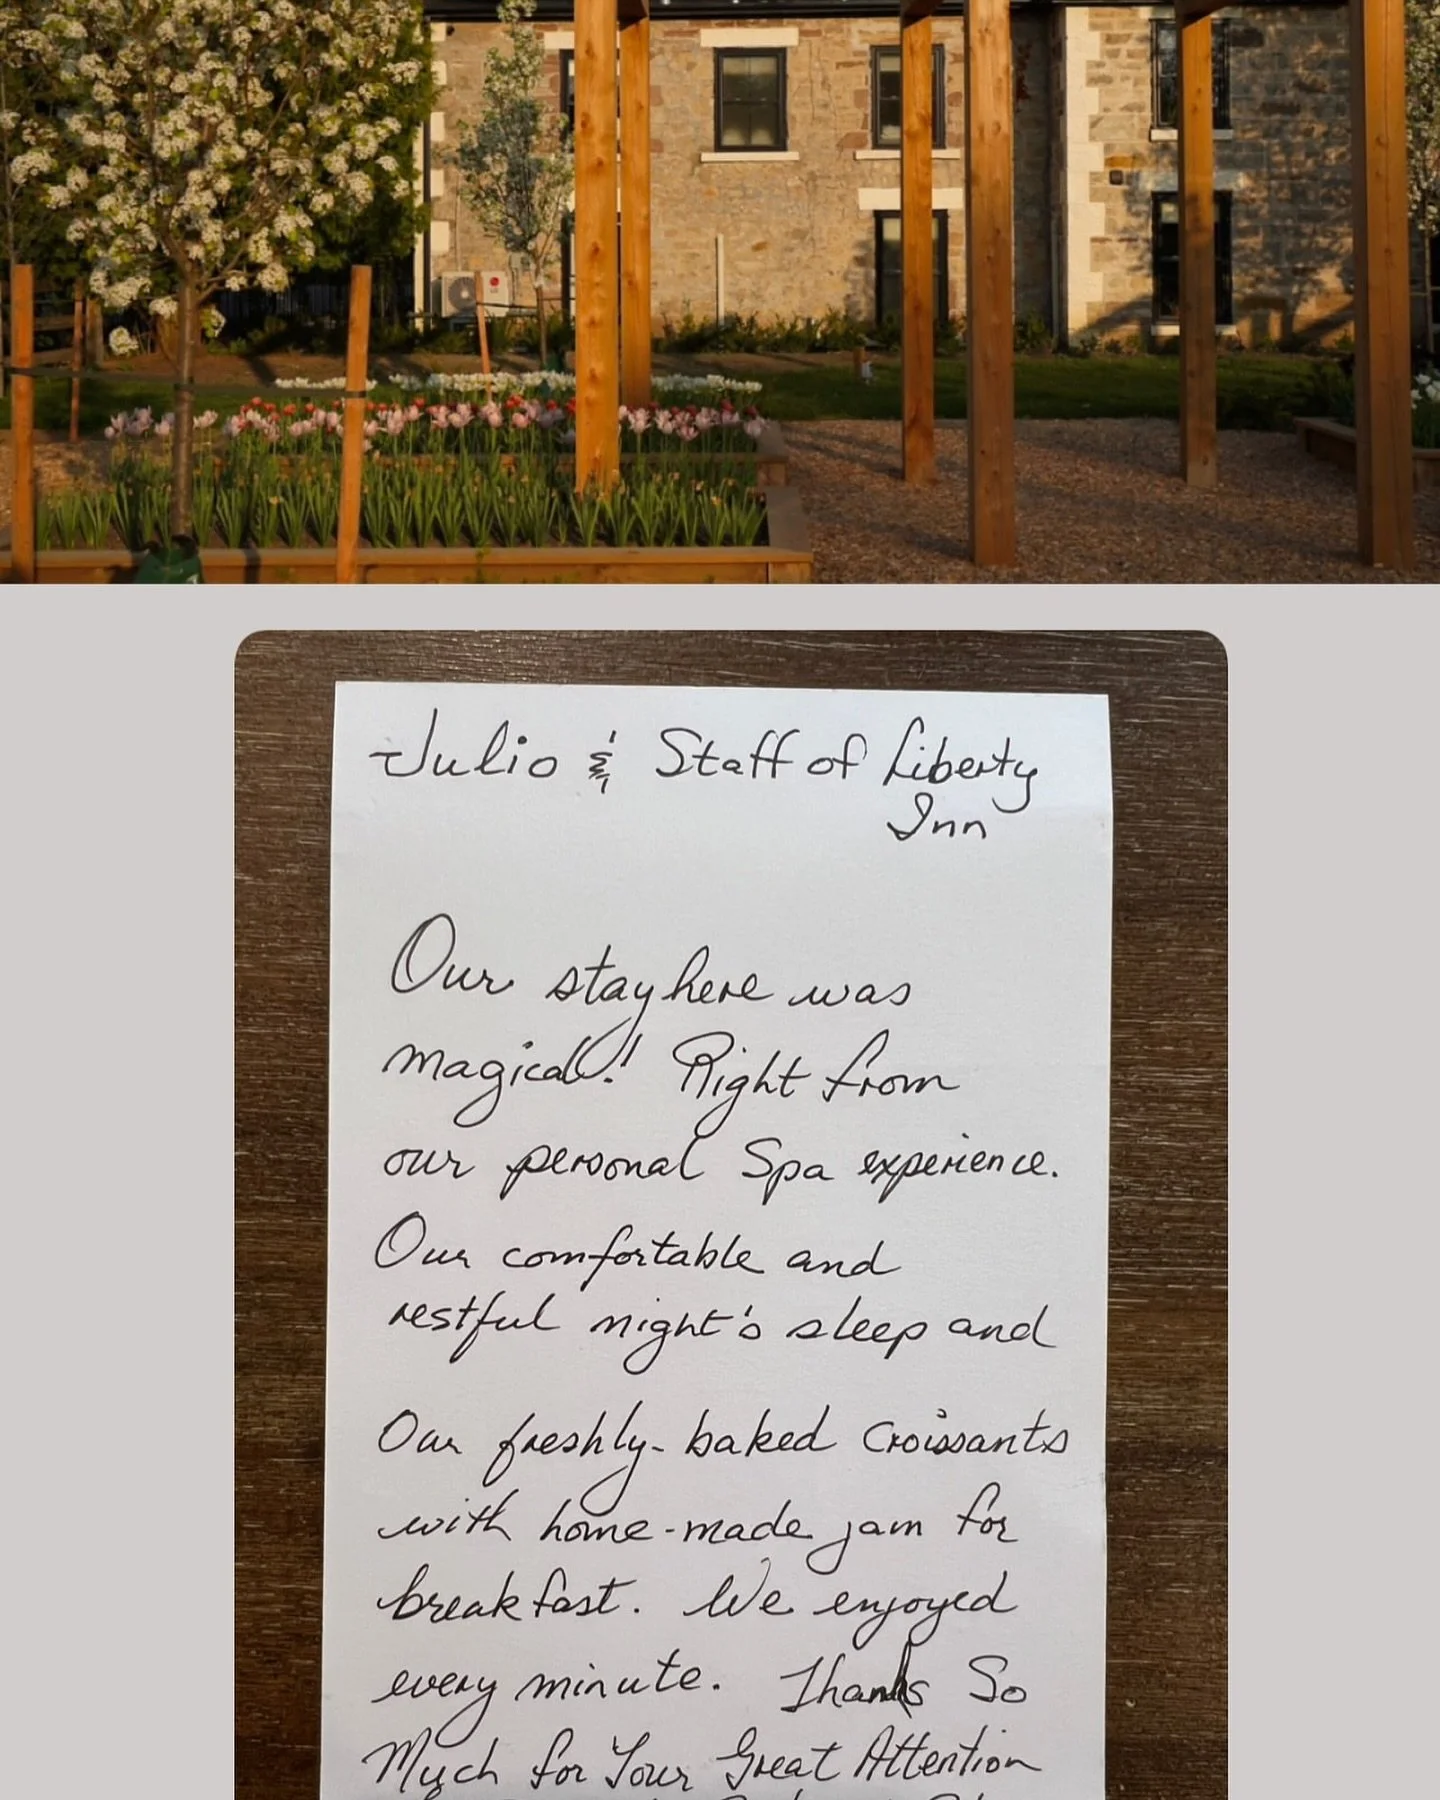 Julio & Staff of Liberty
Inn
Our stay here was
magical! Right from
our personal Spa experience.
Our comfortable and
restful night's sleep and
Our freshly-baked Croissants
with home-made jam for
breakfast. We enjoyed
every minute. Thanks So
Much for Your Great Attention